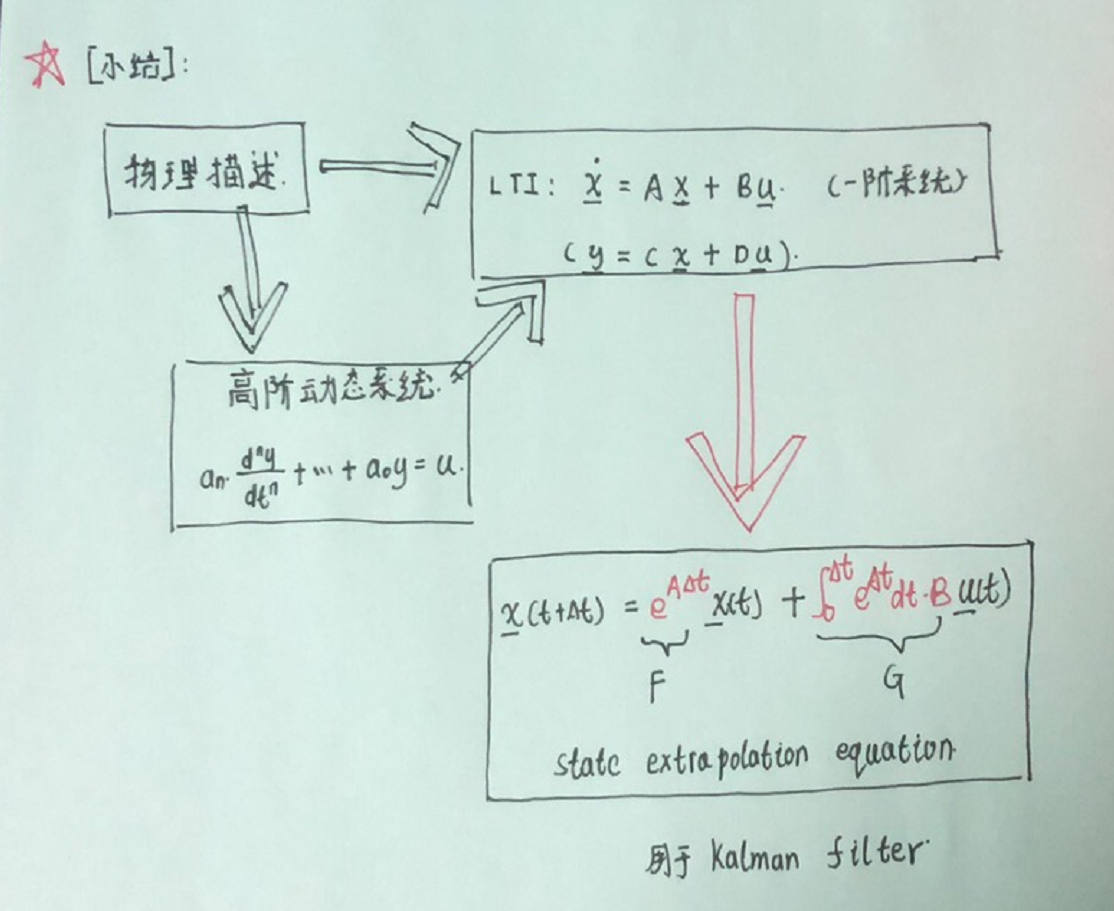 ☆ [小结]:
物理描述.
LTI: ẋ = A x + B u. (一阶系统)
( y = C x + D u ).
高阶动态系统.
aₙ. dⁿy/dtⁿ + … + a₀y = u.
x(t+Δt) = e^{AΔt} x(t) + ∫₀^{Δt} e^{At} dt · B u(t)
F
G
state extrapolation equation
用于 Kalman filter.